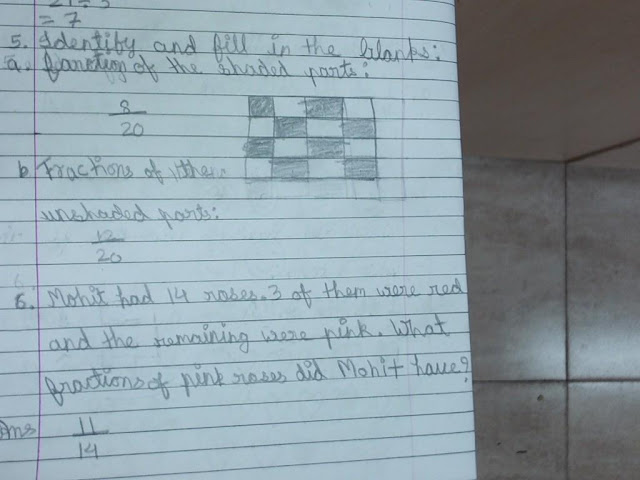 = 7
5. Identify and fill in the blanks:
a. function of the shaded parts:
8
20
b Fractions of the
unshaded parts:
12
20
6. Mohit had 14 roses. 3 of them were red
and the remaining were pink. What
fractions of pink roses did Mohit have?
Ans 11
14